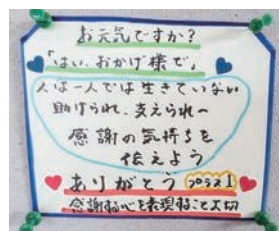 お元気ですか?
「はい、おかげ様で」
人は一人では生きていない
助けられ、支えられ〜
感謝の気持ちを
伝えよう
ありがとう プラス1
感謝する心を表現すること大切